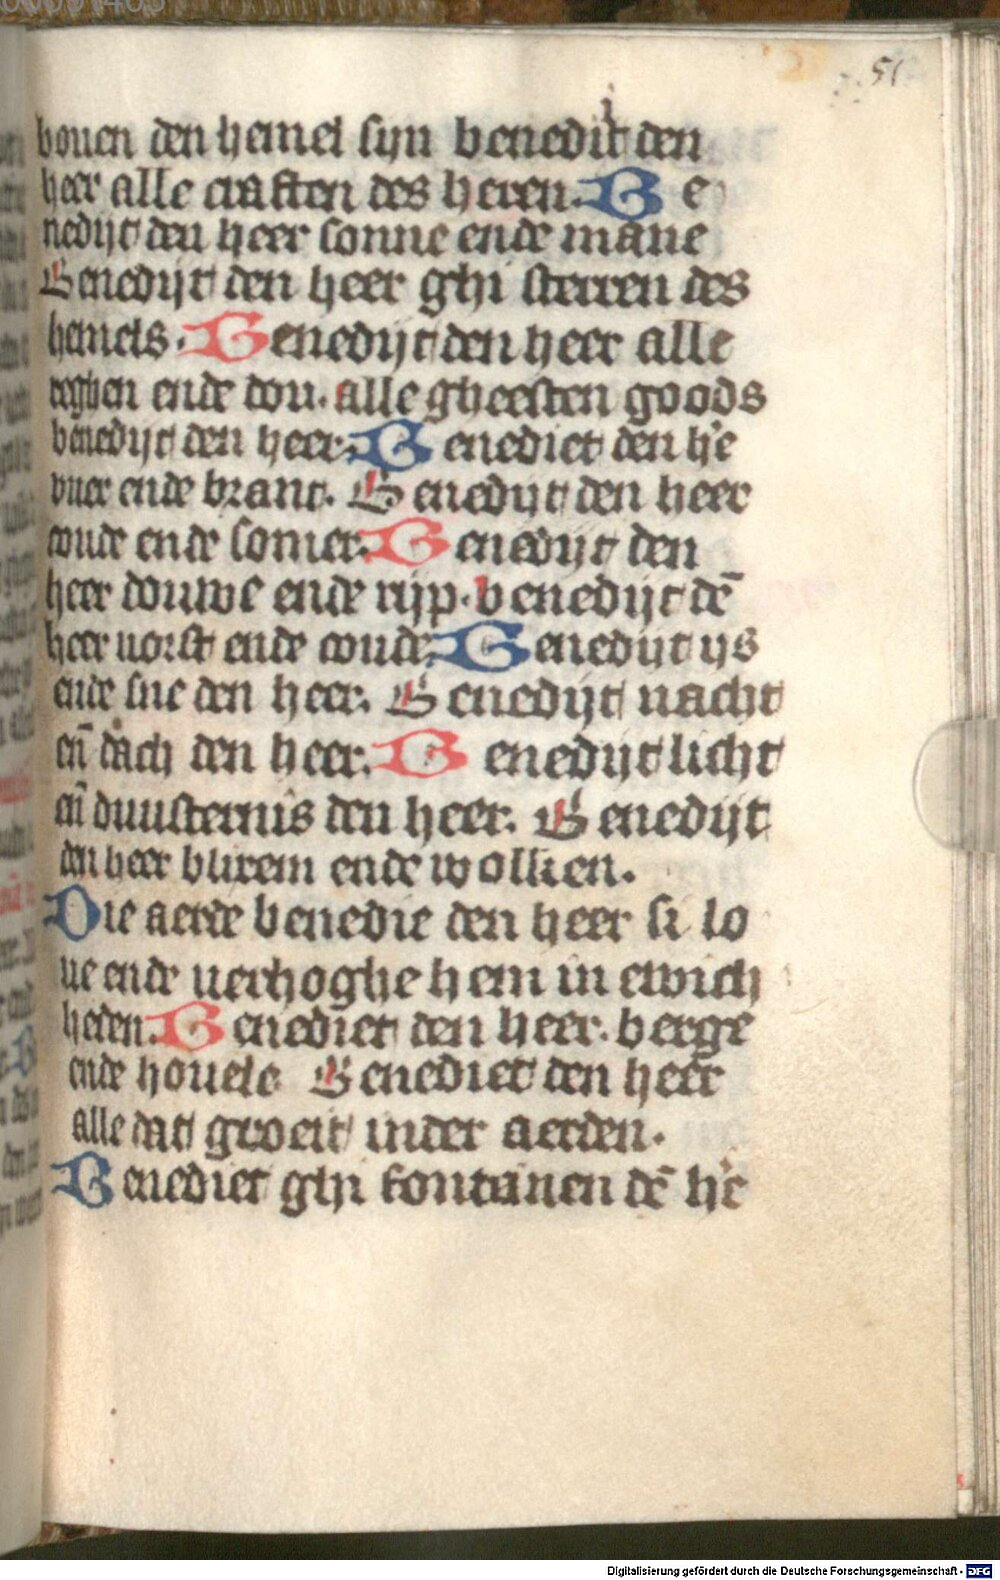 51
bouen den hemel sijn benedijt den
heer alle craften des heren. Be
nedijt den heer sonne ende mane
Benedijt den heer ghi sterren des
hemels. Benedijt den heer alle
reghen ende dou. alle gheesten goods
benedijt den heer. Benediet den he
vuer ende brant. Benedijt den heer
coude ende somer. Benedijt den
heer douwe ende rijp. benedijt dē
heer vorst ende coude. Benedijt ijs
ende sne den heer. Benedijt nacht
eñ dach den heer. Benedijt licht
eñ duusternis den heer. Benedijt
den heer blixem ende wolken.
Die aerde benedie den heer si lo
ue ende verhoghe hem in ewich
heden. Benediet den heer. berge
ende houele Benediet den heer
alle dat groeit inder aerden.
Benediet ghi fontanen dē he
Digitalisierung gefördert durch die Deutsche Forschungsgemeinschaft - DFG